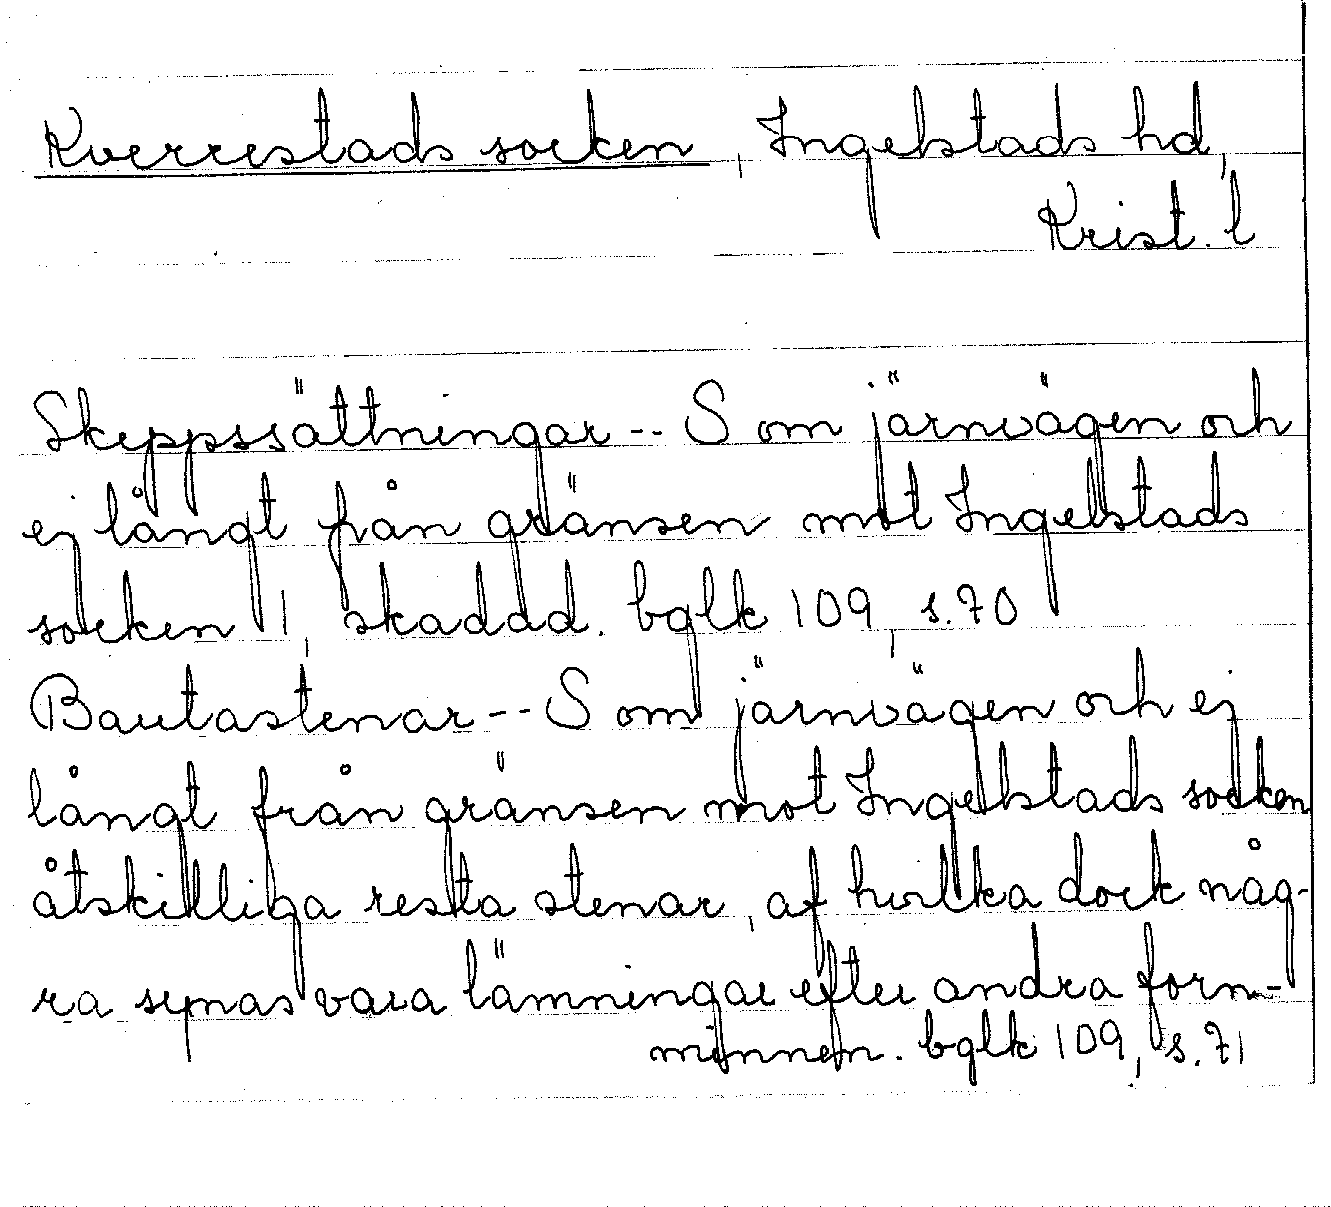 Kverrestads socken, Ingelstads hd,
Krist. l
Skeppssättningar -- S om järnvägen och
ej långt från gränsen mot Ingelstads
socken 1, skadad. bglk 109, s. 70
Bautastenar -- S om järnvägen och ej
långt från gränsen mot Ingelstads socken
åtskilliga resta stenar, af hvilka dock någ-
ra synas vara lämningar efter andra forn-
minnen. bglk 109, s. 71